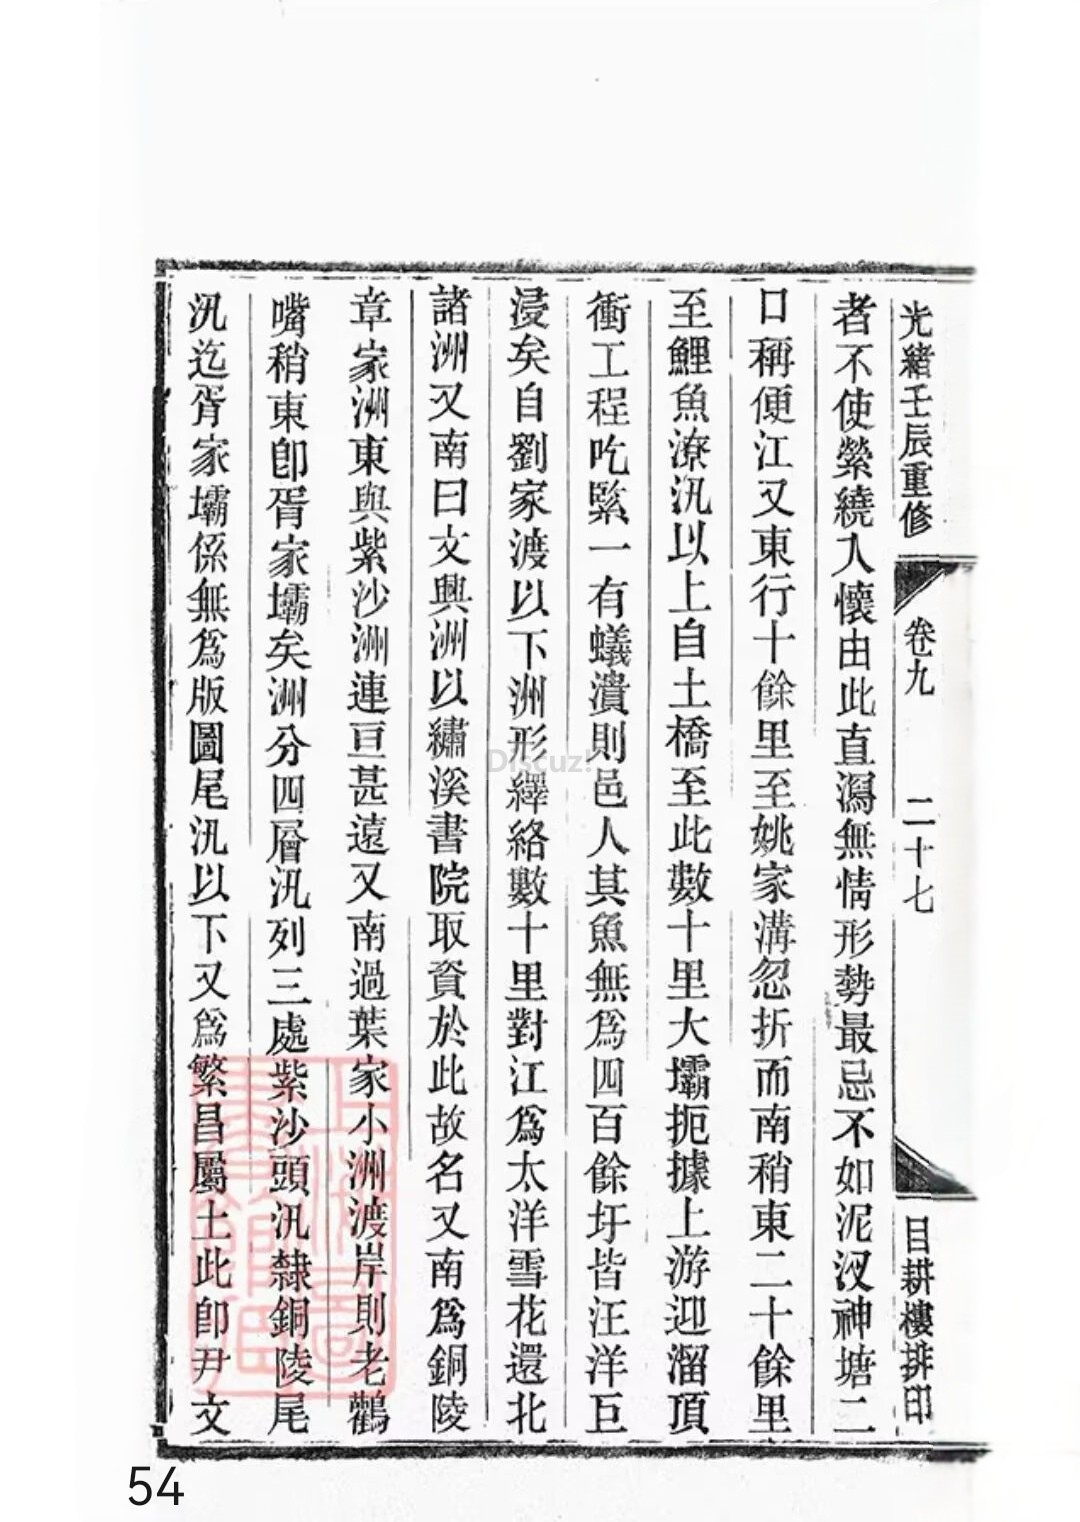 光緒壬辰重修
卷九
二十七
目耕樓排印
者不使縈繞入懷由此直瀉無情形勢最忌不如泥汊神塘二
口稱便江又東行十餘里至姚家溝忽折而南稍東二十餘里
至鯉魚潦汛以上自土橋至此數十里大壩扼據上游迎溜頂
衝工程吃緊一有蟻潰則邑人其魚無爲四百餘圩皆汪洋巨
浸矣自劉家渡以下洲形繹絡數十里對江爲太洋雪花還北
諸洲又南曰文興洲以繡溪書院取資於此故名又南爲銅陵
章家洲東與紫沙洲連亘甚遠又南過葉家小洲渡岸則老鸛
嘴稍東卽胥家壩矣洲分四層汛列三處紫沙頭汛隸銅陵尾
汛迄胥家壩係無爲版圖尾汛以下又爲繁昌屬土此卽尹文
Discuz!
54